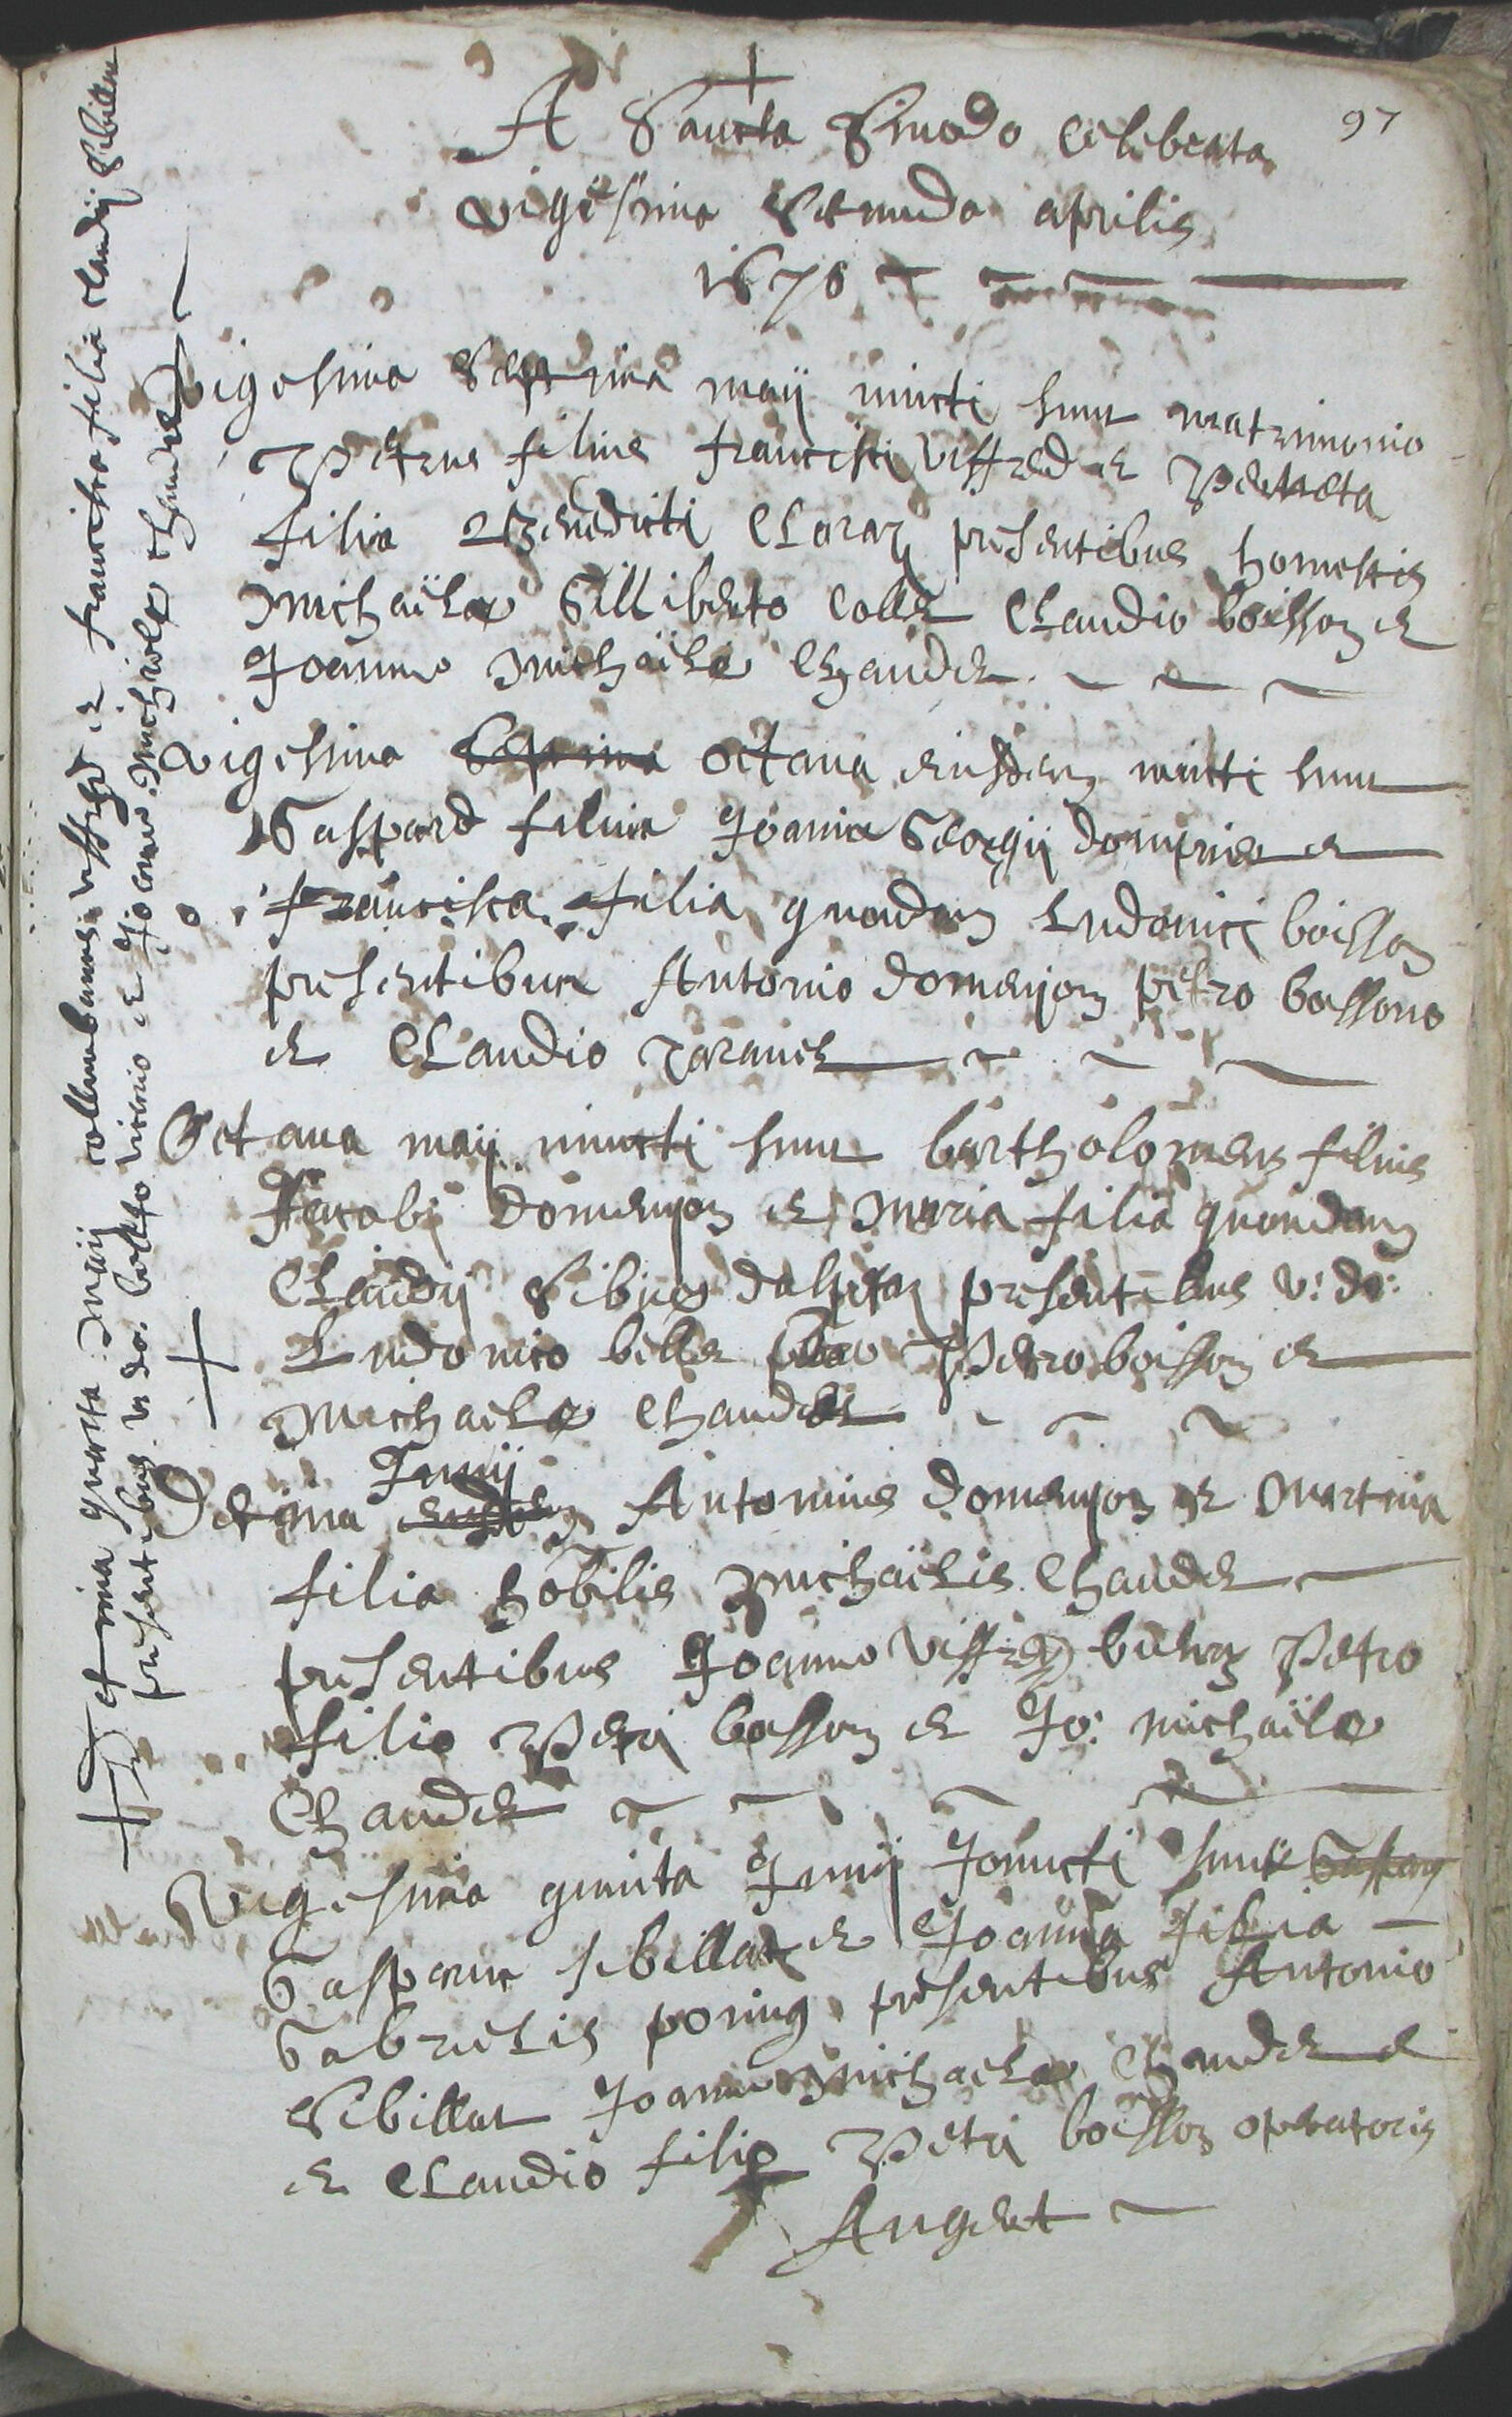 97
A Sancta Sinodo Celebrata
vigesima Secunda aprilis
1670
Vigesima Septima maij iuncti sunt matrimonio
Petrus filius francisci viffred et Perneta
filia Benedicti Claraz presentibus honestis
michaële Gilliberto Collet Claudio boisson et
Joanne michaële Chaudet
Vigesima Septima octava eiusdem iuncti sunt
Gaspard filius Joannis Georgij domenjer et
francisca filia quondam Ludovici boisson
presentibus Antonio domenjon petro bossono
et Claudio
Octava maij iuncti sunt bartholomeus filius
Jacobi Domenjon et Maria filia quondam
Claudij presentibus v: do:
Ludovico bellet Petro boisson et
Michaele Chaudet
Junij
Decima eiusdem Antonius Domenjon et Martina
filia hobilis Michaëlis Chaudet
presentibus Joanne viffred Petro
filio Petri bosson et Jo: michaële
Chaudet
Vigesima quinta Junij Coniuncti sunt
Gaspard sibillat et Joanna filia
Gabrielis presentibus Antonio
Sibillat Joanne Michaele Chaudet et
et Claudio filio Petri boisson operatoris
Anget
Decima quarta Maij viffred et francisca filia claudij Sibillat
presentibus v: do: vicario et Jo Michaele Chaudet